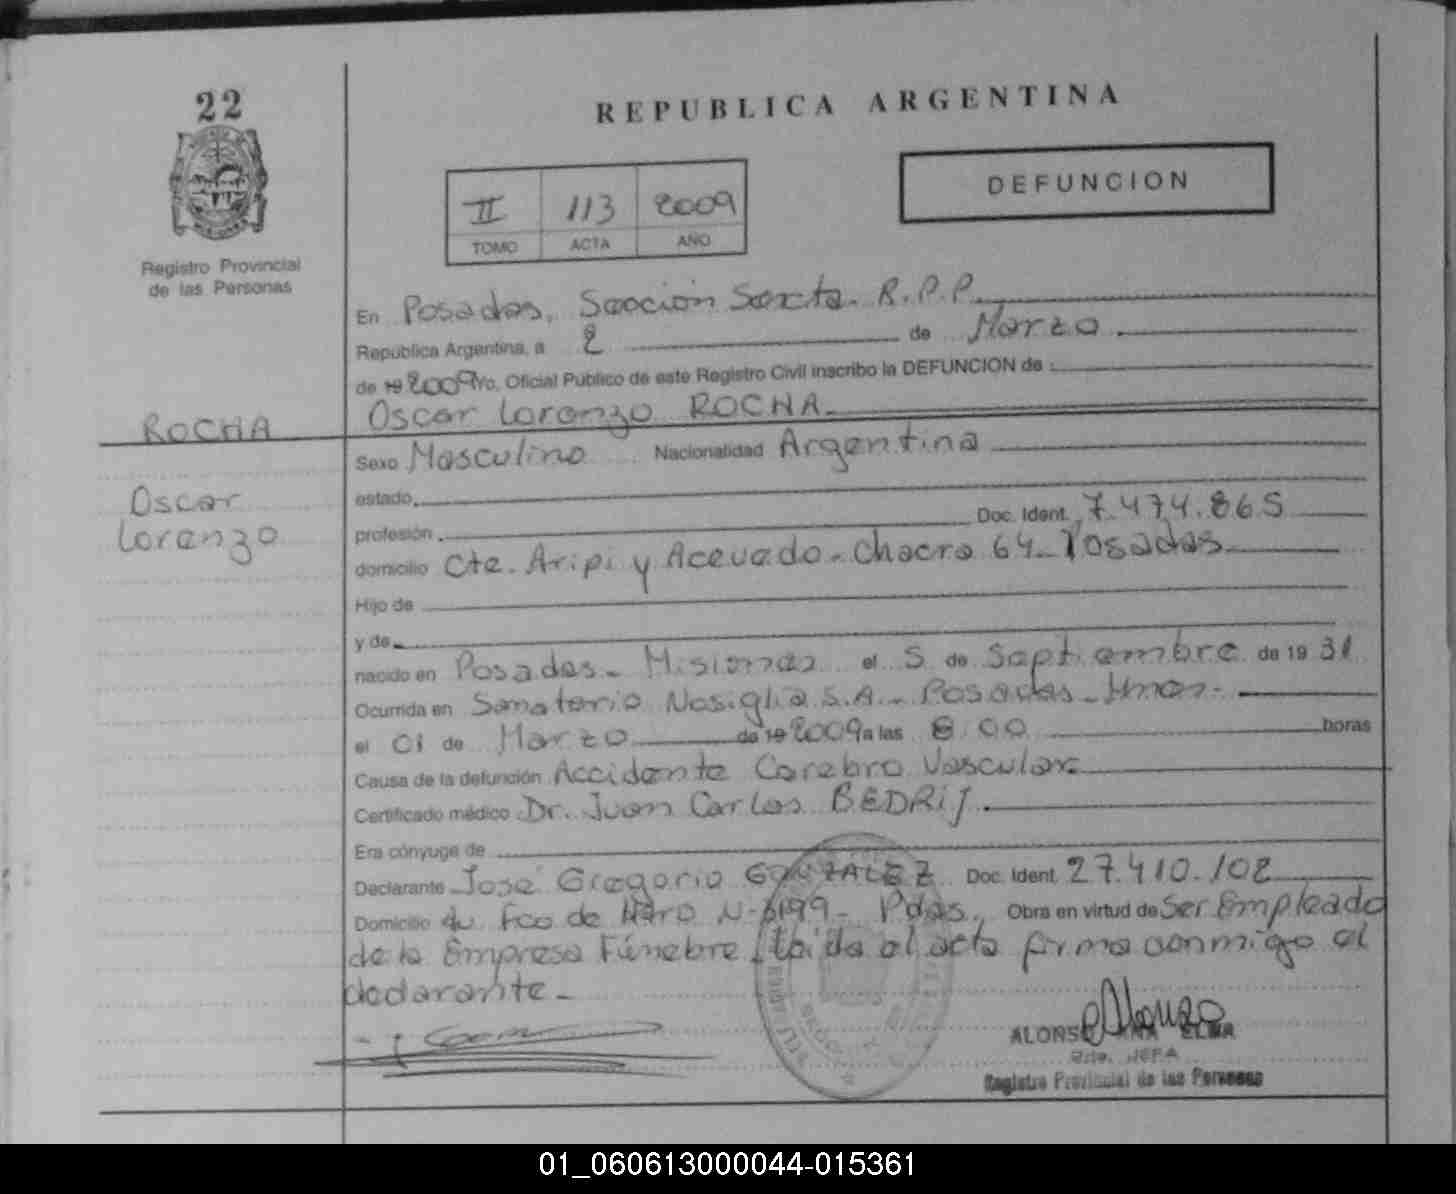 22
REPUBLICA ARGENTINA
DEFUNCION
II 113 2009
TOMO ACTA AÑO
Registro Provincial
de las Personas
En Posadas, Sección Sexta. R.P.P.
República Argentina, a 2 de Marzo
de 19 2009 Yo, Oficial Público de este Registro Civil inscribo la DEFUNCION de :
Oscar Lorenzo ROCHA.
ROCHA
Oscar
Lorenzo
Sexo Masculino Nacionalidad Argentina
estado
profesión Doc. Ident. 7.474.865
domicilio Cte. Aripi y Acevedo - Chacra 64 - Posadas
Hijo de
y de
nacido en Posadas - Misiones el 5 de Septiembre de 19 31
Ocurrida en Sanatorio Nosiglia S.A. - Posadas - Mnes.
el 01 de Marzo de 19 2009 a las 8:00 horas
Causa de la defunción Accidente Cerebro Vascular
Certificado médico Dr. Juan Carlos BEDRIJ.
Era cónyuge de
Declarante José Gregorio GONZALEZ Doc. Ident. 27.410.102
Domicilio Av. Fco de Haro N- 6199 - Pdas. Obra en virtud de Ser Empleado
de la Empresa Fúnebre, leida el acta firma conmigo el
declarante -
ALONSO ANA ELMA
JEFA
Registro Provincial de las Personas
01_060613000044-015361